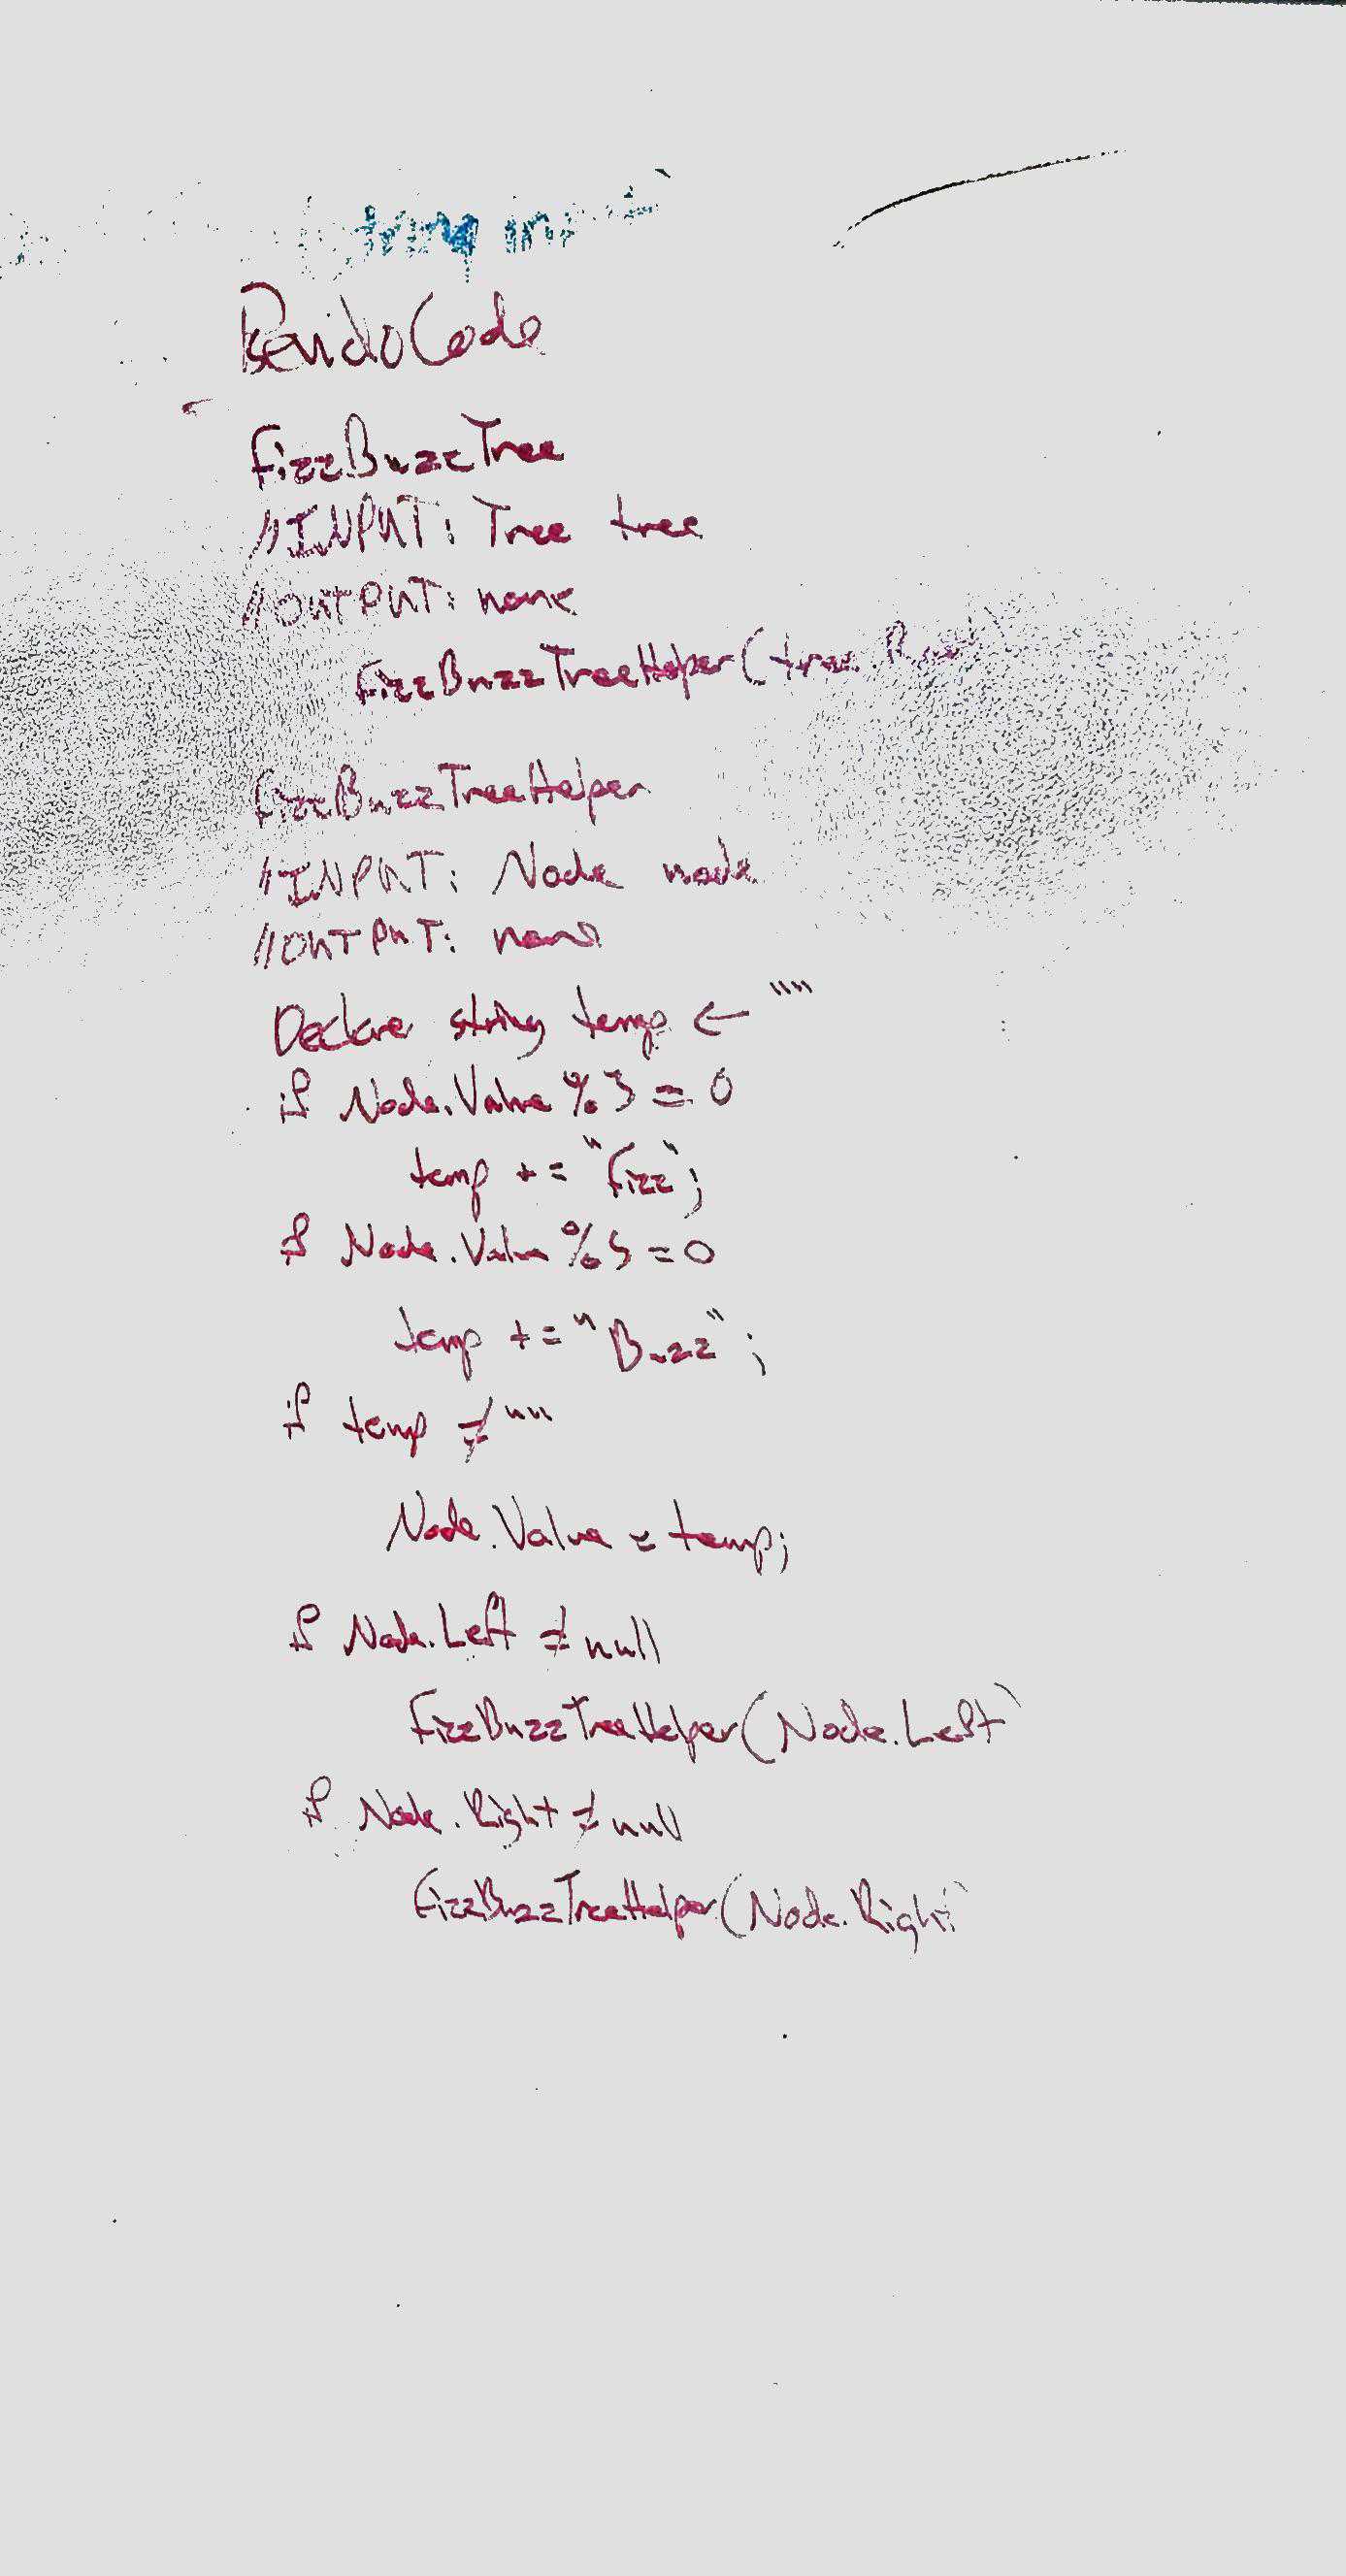 PseudoCode
FizzBuzzTree
//INPUT: Tree tree
//OUTPUT: none
FizzBuzzTreeHelper(tree.Root)
FizzBuzzTreeHelper
//INPUT: Node node
//OUTPUT: none
Declare string temp ← ""
if Node.Value % 3 = 0
temp += "Fizz";
if Node.Value % 5 = 0
temp += "Buzz";
if temp ≠ ""
Node.Value = temp;
if Node.Left ≠ null
FizzBuzzTreeHelper(Node.Left)
if Node.Right ≠ null
FizzBuzzTreeHelper(Node.Right)